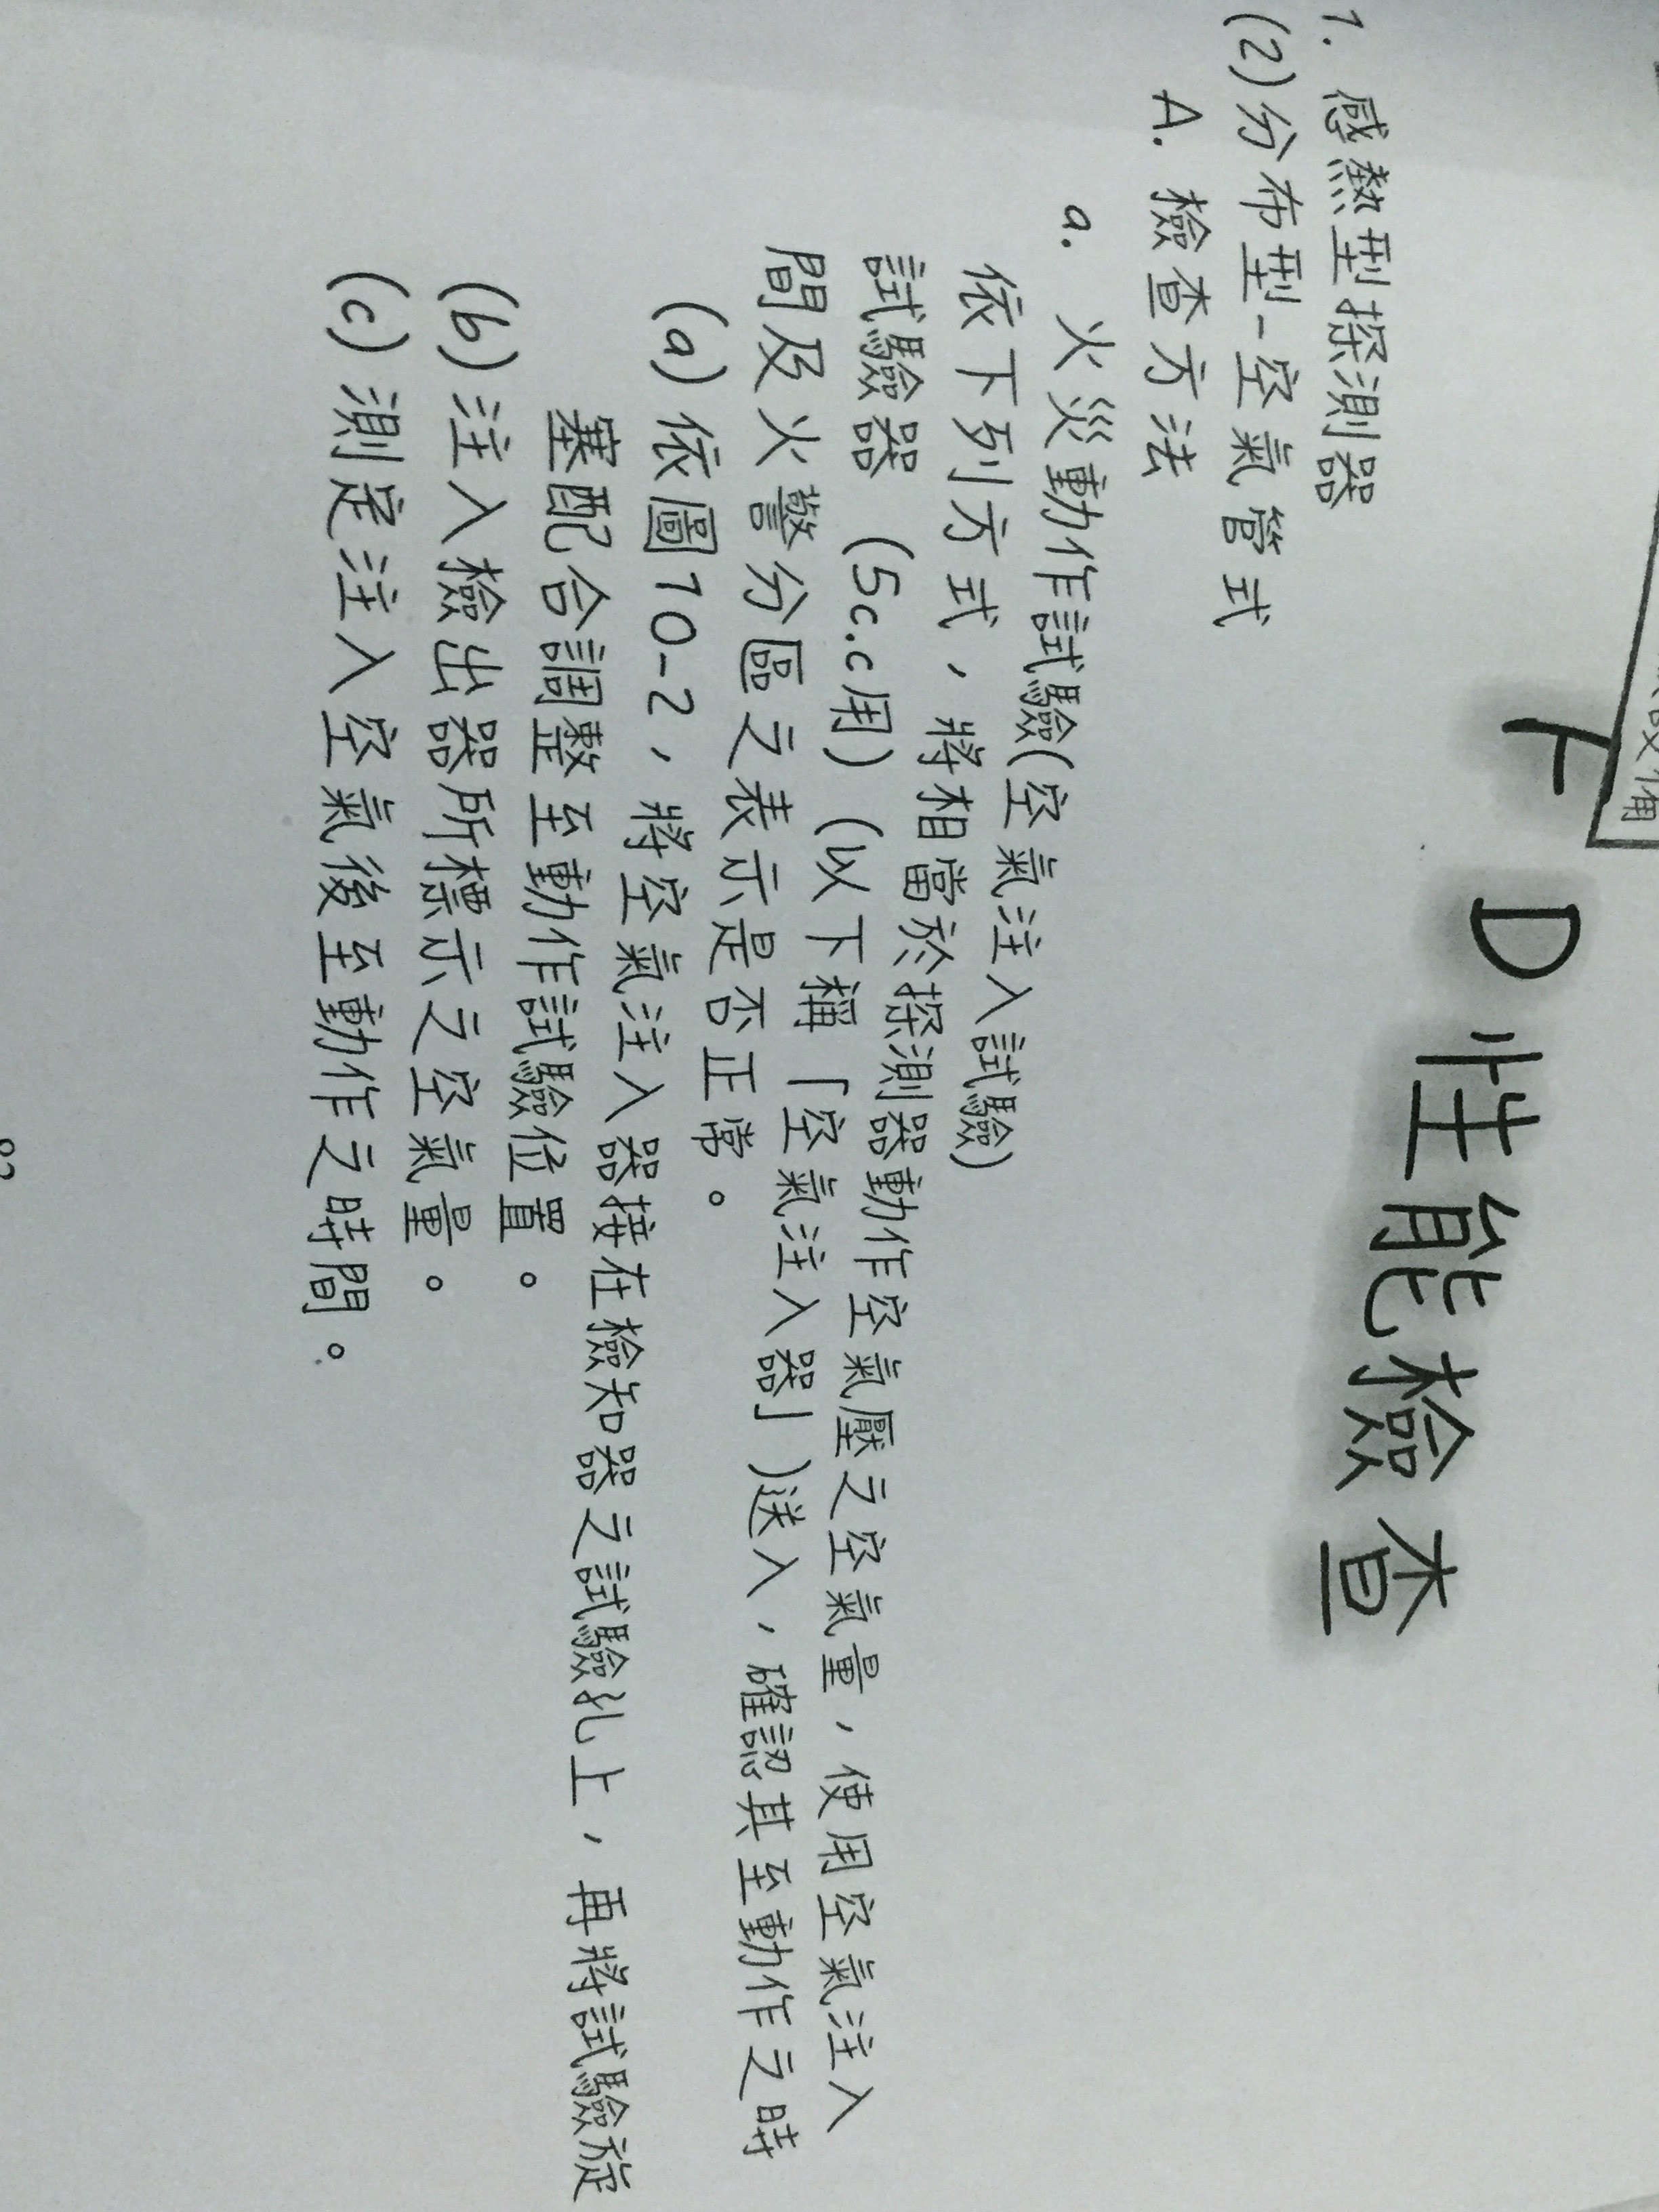 D 性能檢查
1. 感熱型探測器
(2)分布型-空氣管式
A. 檢查方法
a. 火災動作試驗(空氣注入試驗)
依下列方式，將相當於探測器動作空氣壓之空氣量，使用空氣注入
試驗器 (5c.c用) (以下稱「空氣注入器」)送入，確認其至動作之時
間及火警分區之表示是否正常。
(a)依圖10-2，將空氣注入器接在檢知器之試驗孔上，再將試驗旋
塞配合調整至動作試驗位置。
(b)注入檢出器所標示之空氣量。
(c)測定注入空氣後至動作之時間。